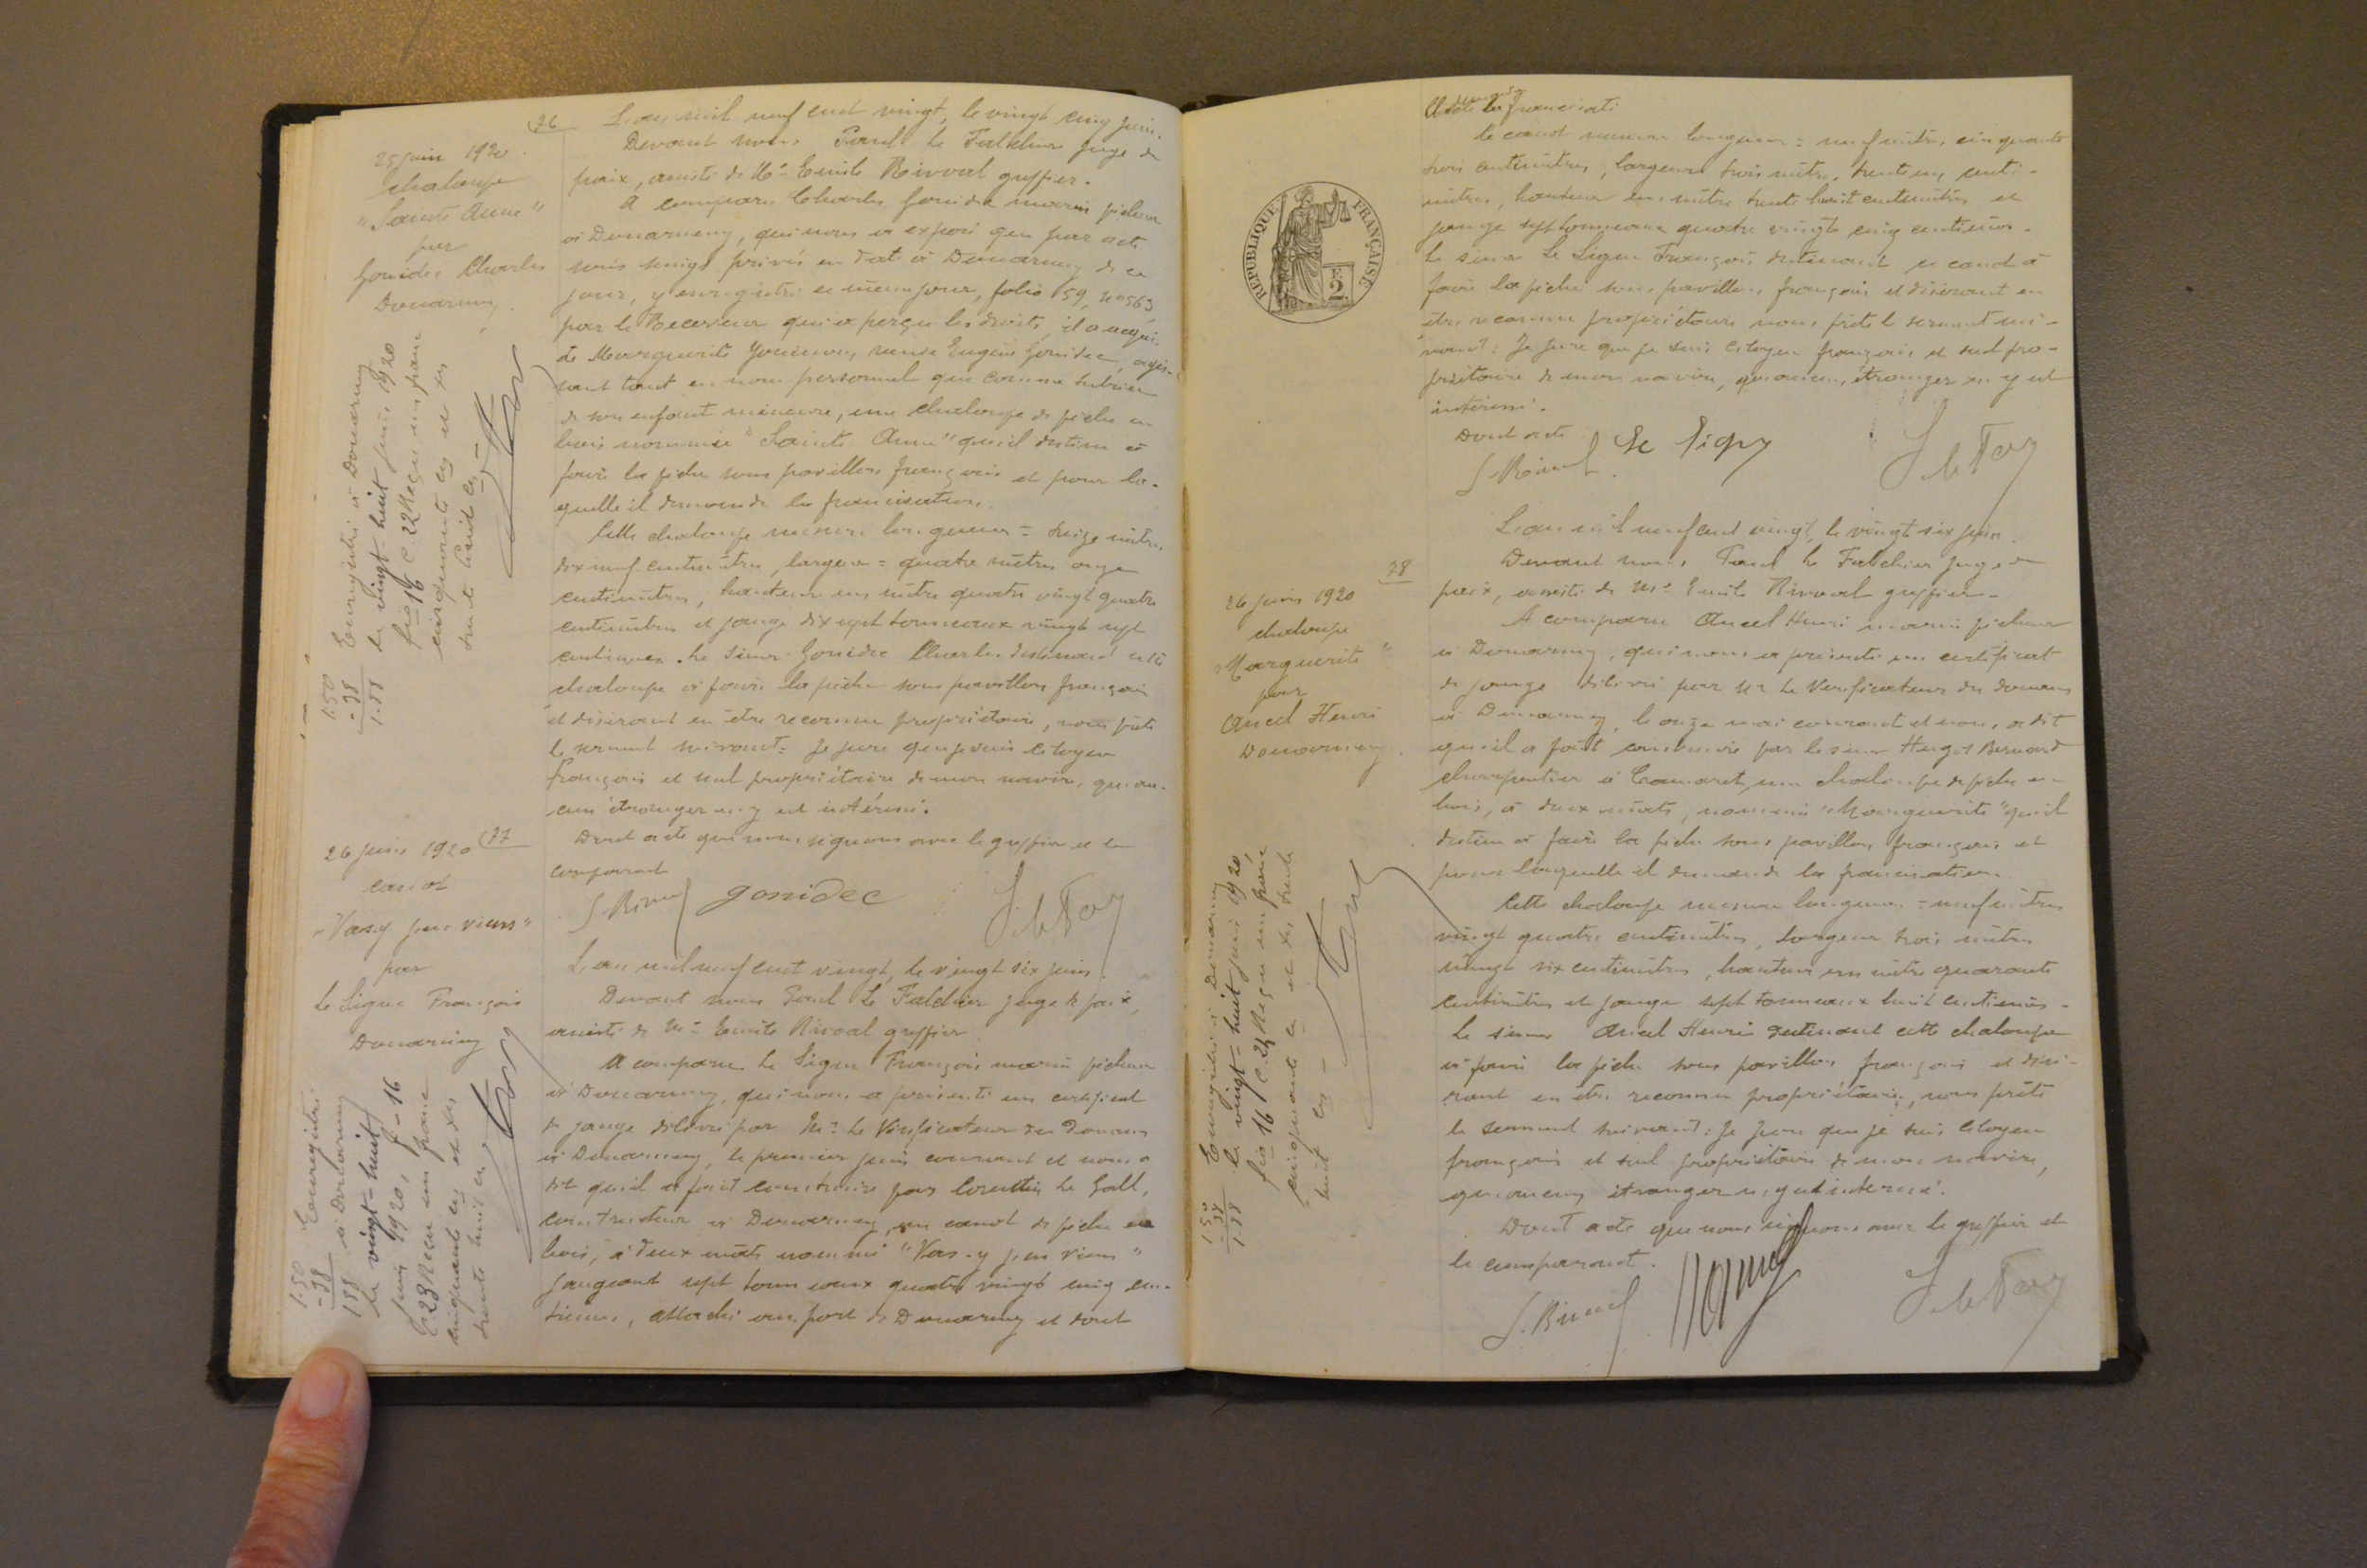 76
25 juin 1920
chaloupe
"Sainte Anne"
par
Gonidec Charles
Douarnenez
Enregistré à Douarnenez
le vingt-huit juin 1920
fio 16 C. 22 Reçu un franc
cinquante ces et dxs
trente huit ces
1.50
-38
1.88
L'an mil neuf cent vingt, le vingt cinq juin.
Devant nous Paul Le Falchier juge de
paix, assisté de Me Emile Rivoal greffier.
A comparu Charles Gonidec marin pêcheur
à Douarnenez, qui nous a exposé que par acte
sous seings privés en date à Douarnenez de ce
jour, y enregistré ce même jour, folio 59, No 563
par le Receveur qui a perçu les droits, il a acquis
de Marguerite Youinou, veuve Eugène Gonidec, agis-
sant tant en nom personnel que comme tutrice
de son enfant mineure, une chaloupe de pêche en
bois nommée "Sainte Anne" qu'il destine à
faire la pêche sous pavillon français et pour la-
quelle il demande la francisation.
Cette chaloupe mesure longueur = treize mètres
dix neuf centimètres, largeur = quatre mètres onze
centimètres, hauteur un mètre quatre vingt quatre
centimètres et jauge dix sept tonneaux vingt sept
centièmes. Le sieur Gonidec Charles destinant cette
chaloupe à faire la pêche sous pavillon français
et désirant en être reconnu propriétaire, nous prête
le serment suivant: Je jure que je suis citoyen
français et seul propriétaire de mon navire, qu'au-
cun étranger n'y est intéressé.
Dont acte que nous signons avec le greffier et le
comparant
E. Rivoal gonidec P. Le Fal
77
26 juin 1920
canot
"Vas-y j'en viens"
par
Le Signe François
Douarnenez
Enregistré
à Douarnenez
le vingt-huit
juin 1920, f. 16
C. 23 Reçu un franc
cinquante ces et dxs
trente huit ces
1.50
-38
1.88
L'an mil neuf cent vingt, le vingt six juin.
Devant nous Paul Le Falchier juge de paix,
assisté de Me Emile Rivoal greffier
A comparu Le Signe François marin pêcheur
à Douarnenez, qui nous a présenté un certificat
de jauge délivré par Mr le Vérificateur des Douanes
à Douarnenez, le premier juin courant et nous a
dit qu'il a fait construire par Corentin Le Gall,
constructeur à Douarnenez, un canot de pêche en
bois, à deux mâts nommé "Vas-y j'en viens"
jaugeant sept tonneaux quatre vingt cinq cen-
tièmes, attaché au port de Douarnenez et dont
RÉPUBLIQUE FRANÇAISE
2 F.
demande
la francisation
Le canot mesure longueur = neuf mètres cinquante
trois centimètres, largeur trois mètres trente cinq centi-
mètres, hauteur un mètre trente huit centimètres et
jauge sept tonneaux quatre vingt cinq centièmes.
Le sieur Le Signe François destinant ce canot à
faire la pêche sous pavillon français et désirant en
être reconnu propriétaire nous prête le serment sui-
vant: Je jure que je suis citoyen français et seul pro-
priétaire de mon navire, qu'aucun étranger n'y est
intéressé.
Dont acte
E. Rivoal Le Signe P. Le Fal
78
26 juin 1920
chaloupe
"Marguerite"
par
Ancel Henri
Douarnenez.
Enregistré à Douarnenez
le vingt-huit juin 1920
fio 16 C. 24 Reçu un franc
cinquante ces et dxs trente
huit ces
1.50
-38
1.88
L'an mil neuf cent vingt, le vingt six juin.
Devant nous Paul Le Falchier juge de
paix, assisté de Me Emile Rivoal greffier.
A comparu Ancel Henri marin pêcheur
à Douarnenez, qui nous a présenté un certificat
de jauge délivré par Mr le Vérificateur des douanes
à Douarnenez, le onze mai courant et nous a dit
qu'il a fait construire par le sieur Hugot Bernard
charpentier à Camaret une chaloupe de pêche en
bois, à deux mâts, nommée "Marguerite" qu'il
destine à faire la pêche sous pavillon français et
pour laquelle il demande la francisation.
Cette chaloupe mesure longueur = neuf mètres
vingt quatre centimètres, largeur trois mètres
vingt six centimètres, hauteur un mètre quarante
centimètres et jauge sept tonneaux huit centièmes.
Le sieur Ancel Henri destinant cette chaloupe
à faire la pêche sous pavillon français et dési-
rant en être reconnu propriétaire, nous prête
le serment suivant: Je jure que je suis citoyen
français et seul propriétaire de mon navire,
qu'aucun étranger n'y est intéressé.
Dont acte que nous signons avec le greffier et
le comparant.
E. Rivoal P. Le Fal